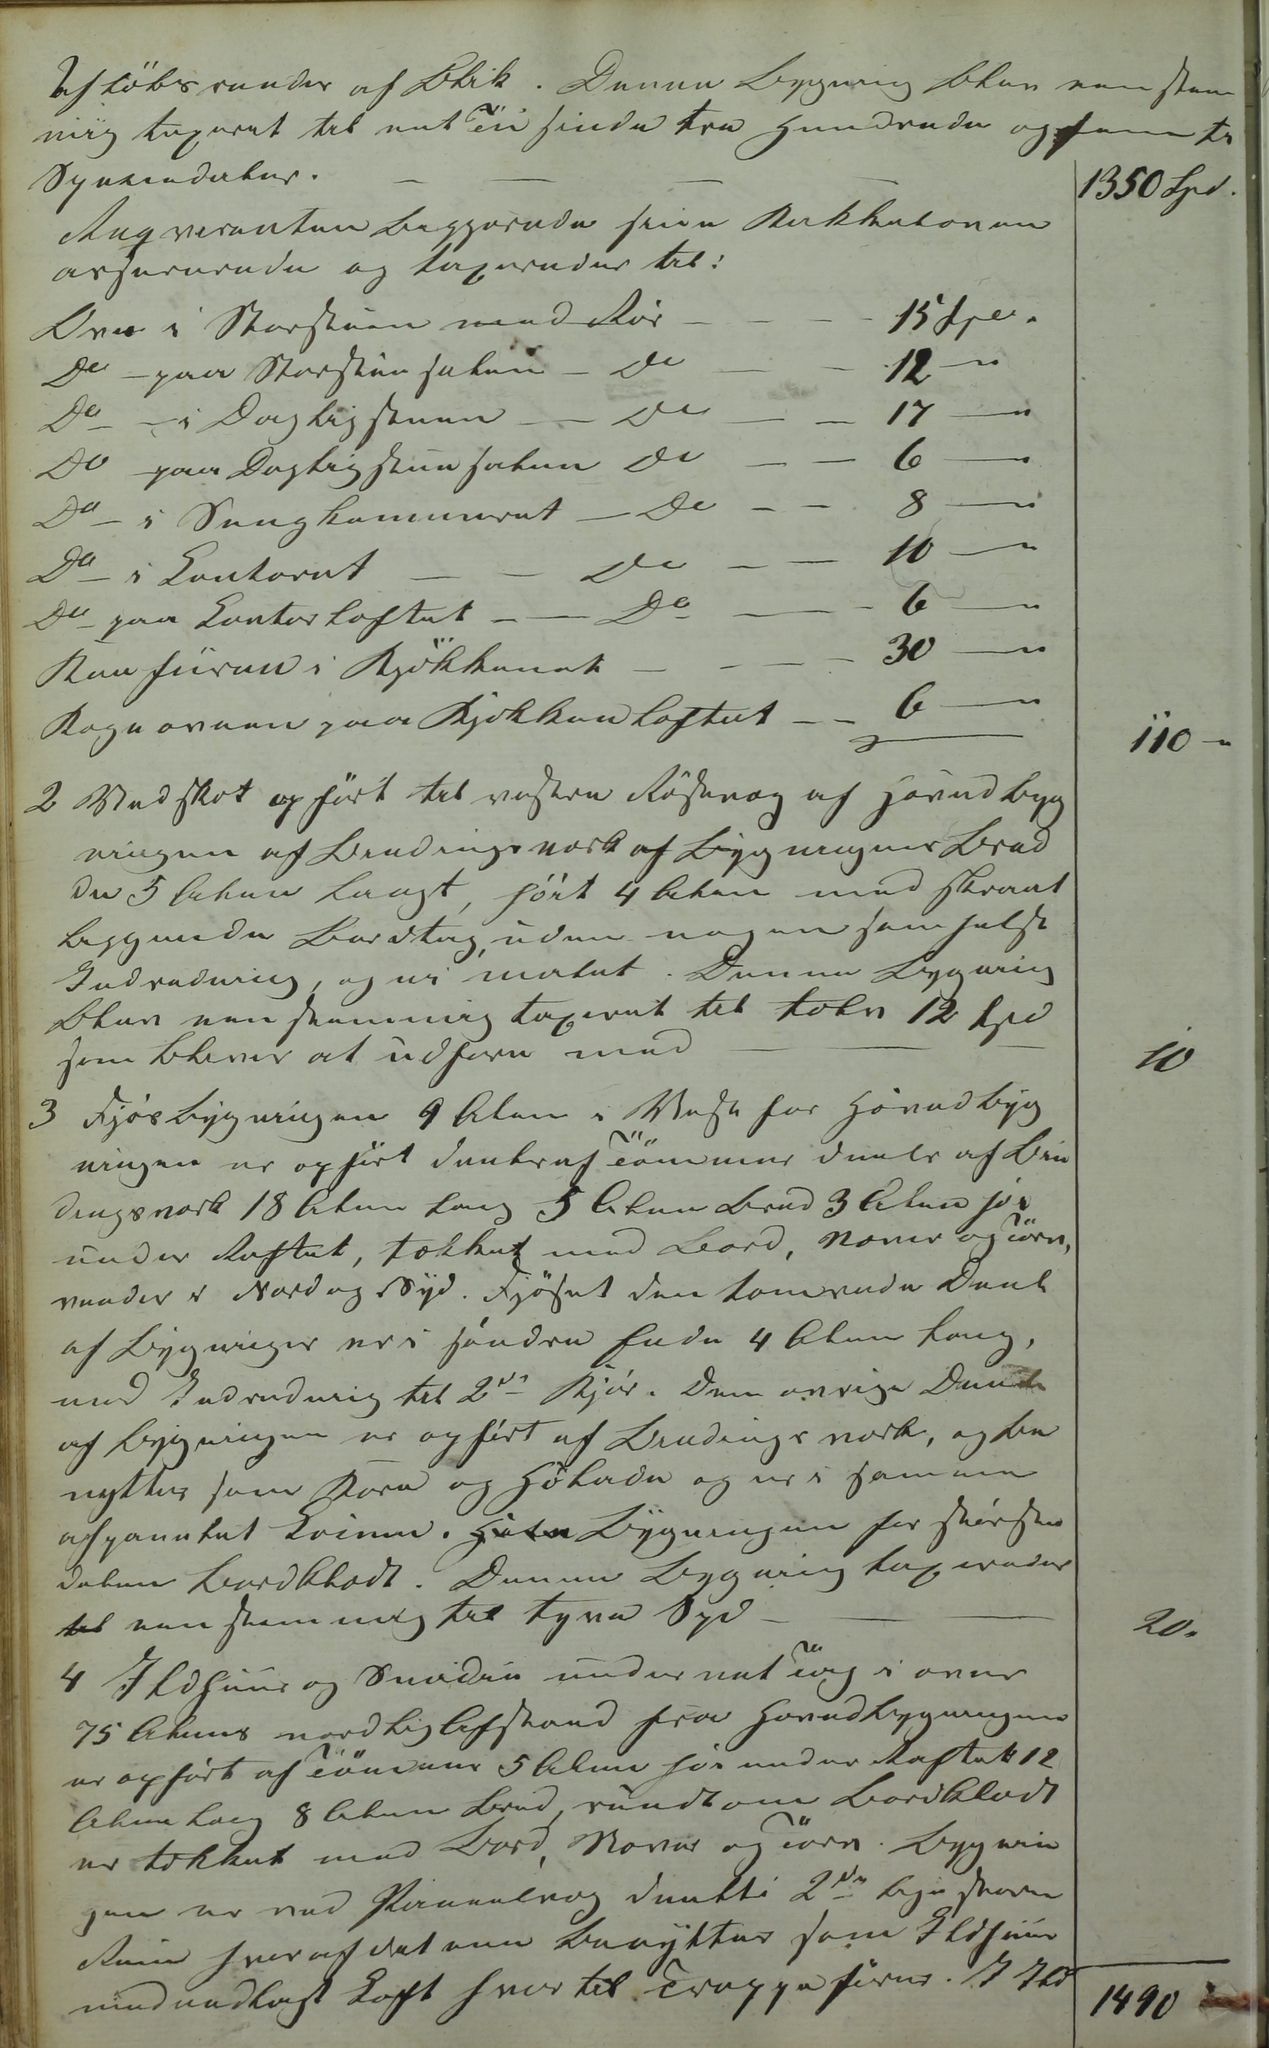 Afløbsrender af Blik. Denne Bygning blev eenstem
mig taxeret til eet Tusinde tre Hundrede og femti
Speciedaler. — — — — 1350 Spd.
Angverenten begjerede sine Kakkelovne
assurerede og taxerede til:
Ovn i Storstuen med Rør — — — 15 Spd.
Do — paa Storstuesalen — Do — — 12 — "
Do — i Dagligstuen — Do — — 17 — "
Do paa Dagligstuesalen Do — — 6 — "
Do — i Sengkammeret — Do — — 8 — "
Do — i Contoret — — Do — — 10 — "
Do paa Contorloftet — — Do — — 6 — "
Komfuren i Kjøkkenet — — — — 30 — "
Kogeovnen paa Kjøkkenloftet — — 6 — "
110 — "
2 Vedskot opført til vestre Røstvæg af Hovedbyg
ningen af Bindingsverk af Bygningens Bred
de 5 Alen langt, høit 4 Alen med skraat
liggende Bordtag, uden nogen somhelst
Indredning, og ei malet. Denne Bygning
blev eenstemmig taxeret til tolv 12 Spd
som bliver at udføre med — — — 10
3 Fjøsbygningen 9 Alen i Vest for Hovedbyg
ningen er opført deels af Tømmer deels af Bin
dingsverk 18 Alen lang 5 Alen bred 3 Alen høi
under Raftet, tækket med Bord, Næver og Törv,
vender i Nord og Syd. Fjøset den tømrede Deel
af Bygningen er i søndre Ende 4 Alen lang,
med Indredning til 2de Kjør. Den øvrige Deel
af Bygningen er opført af Bindingsverk, og be
nyttes som Korn og Høelade og er i samme
afpanelet Rum. Hele Bygningen for størstede
delen bordklædt. Denne Bygning taxeredes
til eenstemmig til tyve Spd — — 20.
4 Ildhuus og Smidie under eet Tag i over
75 Alens nordlig Afstand fra Hovedbygningen
er opført af Tømmer 5 Alen høi under Raftet 12
Alen lang 8 Alen bred, rundt om bordklædt
er tækket med Bord, Næver og Törv. Bygnin
gen er ved Panelvæg deelt i 2de lige store
Rum hveraf det ene benyttes som Ildhuus
med indlagt Loft hvor til Trappe fører. I Ild
1490